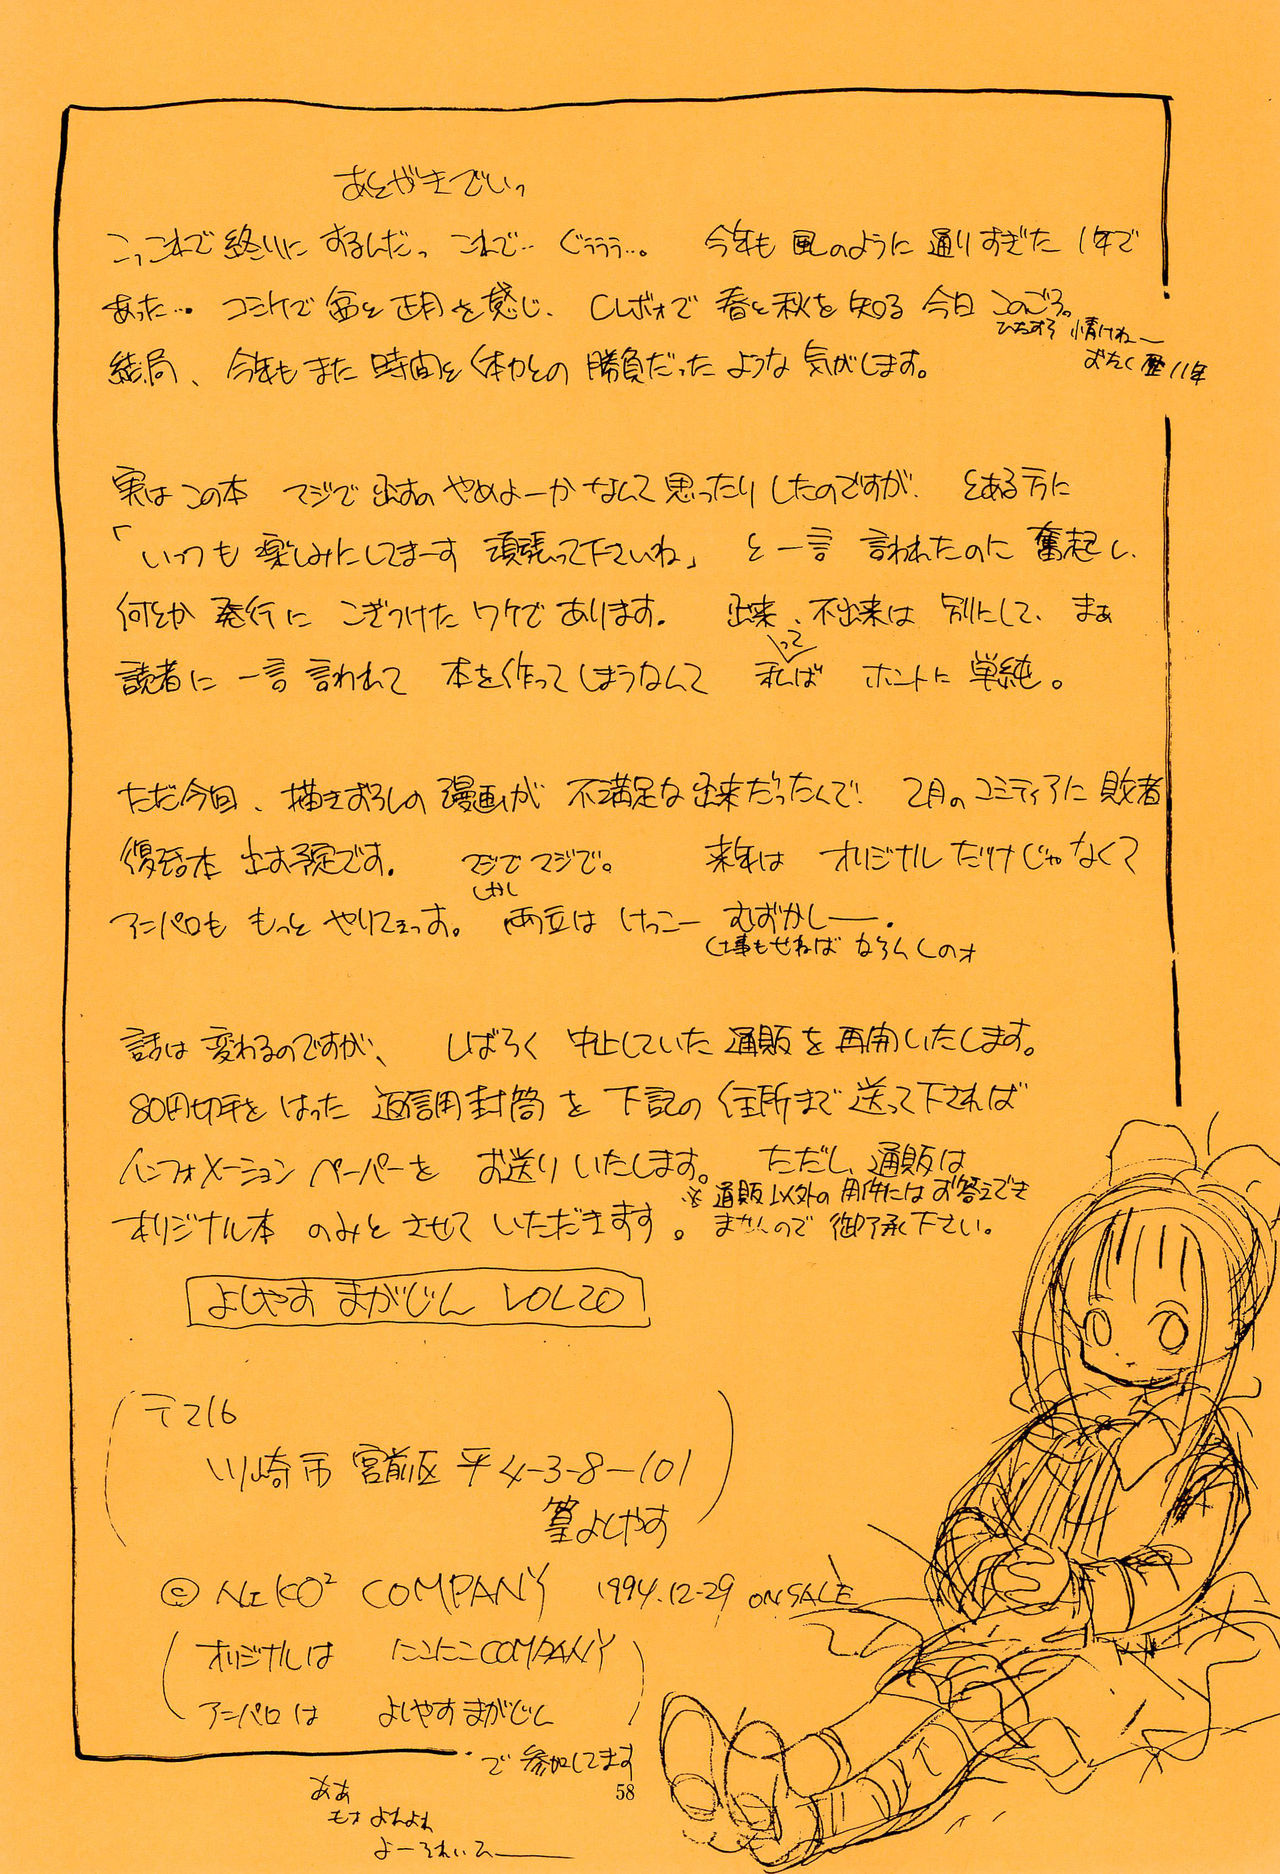 あとがきでいっ
こっこれで終りにするんだっ これで… ぐううう…。 今年も風のように通りすぎた1年で
あった… コミケで盆と正月を感じ、CレボォでP春と秋を知る今日このごろ。
情けねー
おたく歴11年
結局、今年もまた時間と体力との勝負だったような気がします。
実はこの本 マジで出すのやめよーかなんて思ったりしたのですが、とある方に
「いつも楽しみにしてまーす 頑張って下さいね」 と一言 言われたのに奮起し、
何とか発行に こぎつけたワケであります。 出来、不出来は別にして、まぁ
読者に一言言われて 本を作ってしまうなんて 私ってば ホントに単純。
ただ今回、描きおろしの漫画が 不満足な出来だったんで、2月のコミティアに敗者
復活本 出す予定です。 マジでマジで。 来年は オリジナルだけじゃなくて
アニパロも もっと やりてぇっす。 しかし両立は けっこー むずかしー。
仕事もせねば ならんしのォ
話は変わるのですが、 しばらく中止していた通販を再開いたします。
80円切手を はった 返信用封筒を 下記の住所まで送って下されば
インフォメーションペーパーを お送りいたします。 ただし、通販は
オリジナル本 のみと させて いただきます。
※通販以外の用件にはお答えでき
ませんので 御了承下さい。
よしやす まがじん VOL20
〒216
川崎市 宮前区 平4-3-8-101
篁よしやす
© NIKO² COMPANY 1994.12-29 ON SALE
オリジナルは にこにこCOMPANY
アニパロは よしやすまがじん
で参加してます
58
ああ
もォ よれよれ